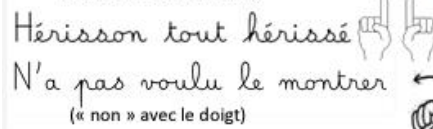 Hérisson tout hérissé
N'a pas voulu le montrer
(« non » avec le doigt)